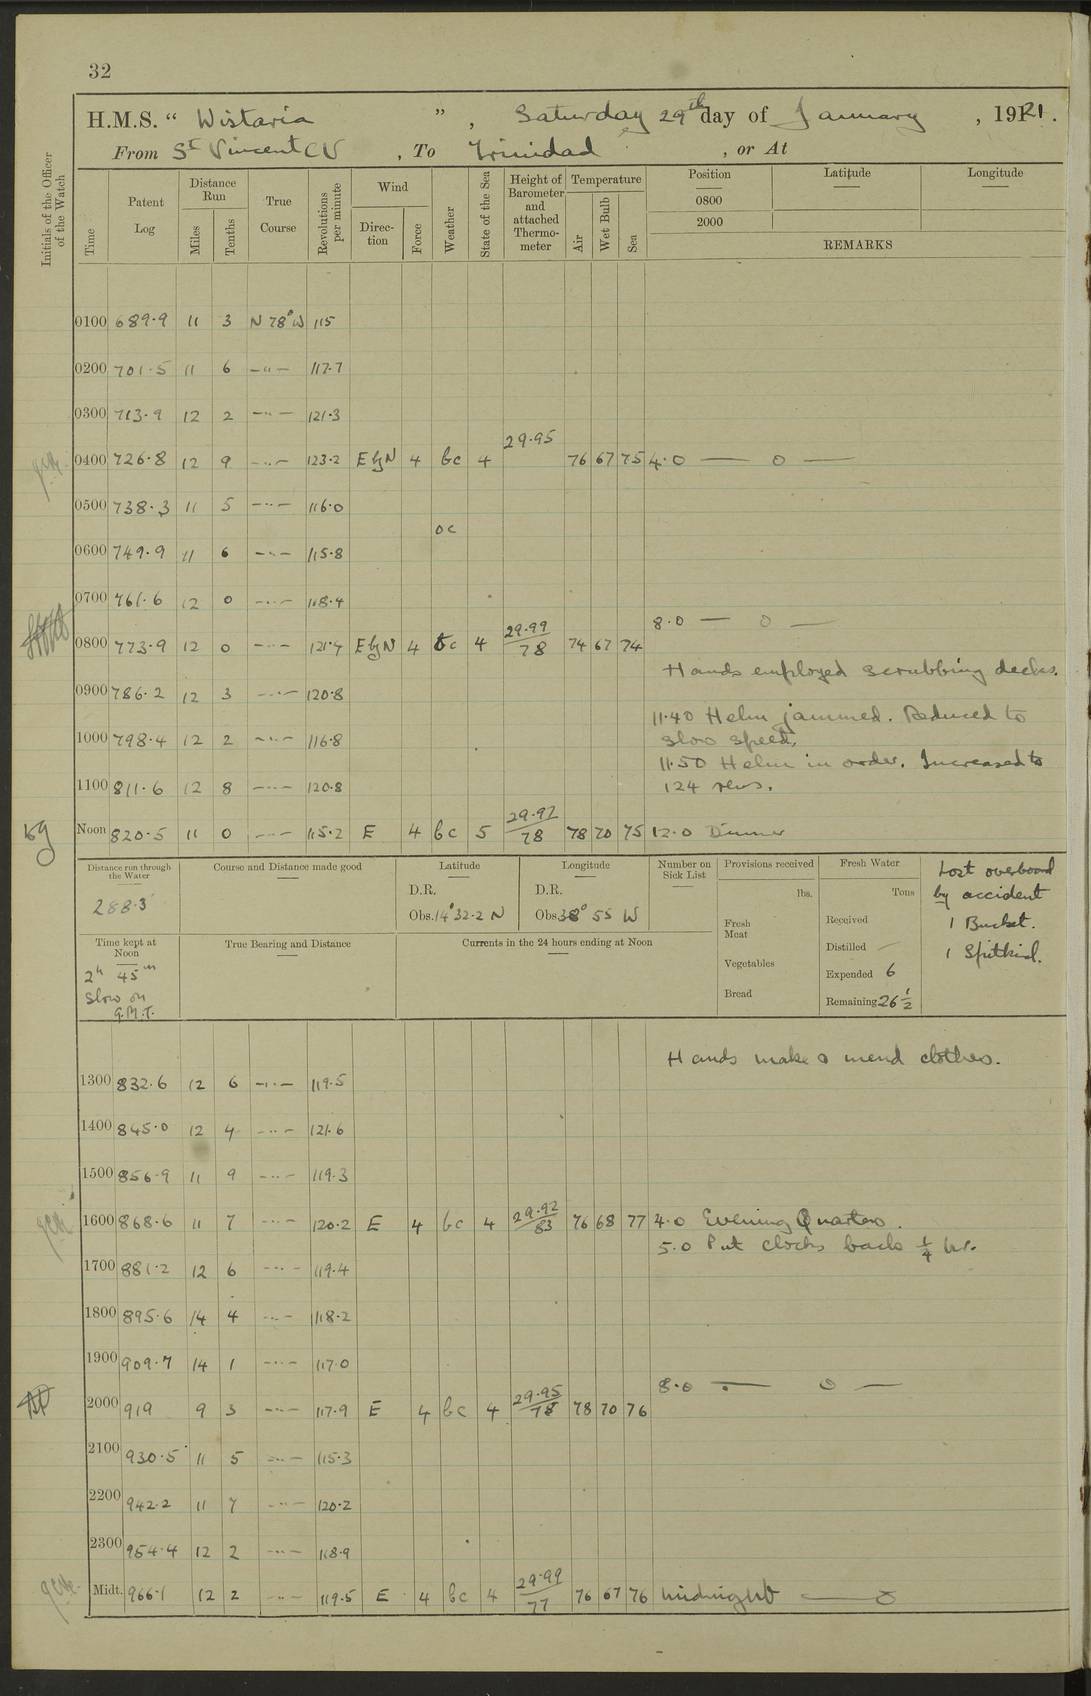 32
H.M.S. “ Wistaria ” , Saturday 29th day of January , 1921 .
From St Vincent CV , To Trinidad , or At
Initials of the Officer of the Watch
Time | Patent Log | Distance Run Miles Tenths | True Course | Revolutions per minute | Wind Direc-tion Force | Weather | State of the Sea | Height of Barometer and attached Thermo-meter | Temperature Air Wet Bulb Sea | Position 0800 2000 | Latitude | Longitude
REMARKS
0100 689.9 11 3 N 78° W 115
0200 701.5 11 6 —"— 117.7
0300 713.9 12 2 —"— 121.3
0400 726.8 12 9 —"— 123.2 E by N 4 bc 4 29.95 76 67 75 4.0 — 0 —
0500 738.3 11 5 —"— 116.0
oc
0600 749.9 11 6 —"— 115.8
0700 761.6 12 0 —"— 118.4
8.0 — 0 —
0800 773.9 12 0 —"— 121.4 E by N 4 bc 4 29.99/78 74 67 74
Hands employed scrubbing decks.
0900 786.2 12 3 —"— 120.8
11.40 Helm jammed. Reduced to
1000 798.4 12 2 —"— 116.8 slow speed.
11.50 Helm in order. Increased to
1100 811.6 12 8 —"— 120.8 124 revs.
Noon 820.5 11 0 —"— 115.2 E 4 bc 5 29.97/78 78 70 75 12.0 Dinner
Distance run through the Water
288.3
Course and Distance made good
Latitude
D.R.
Obs. 14° 32.2 N
Longitude
D.R.
Obs. 38° 55 W
Number on Sick List
Provisions received
lbs.
Fresh Meat
Vegetables
Bread
Fresh Water
Tons
Received
Distilled —
Expended 6
Remaining 26 1/2
Lost overboard
by accident
1 Bucket.
1 Spitkid.
Time kept at Noon
2h 45m
Slow on
G.M.T.
True Bearing and Distance
Currents in the 24 hours ending at Noon
Hands make & mend clothes.
1300 832.6 12 6 —"— 119.5
1400 845.0 12 4 —"— 121.6
1500 856.9 11 9 —"— 119.3
1600 868.6 11 7 —"— 120.2 E 4 bc 4 29.92/83 76 68 77 4.0 Evening Quarters.
5.0 Put clocks back 1/4 hr.
1700 881.2 12 6 —"— 119.4
1800 895.6 14 4 —"— 118.2
1900 909.7 14 1 —"— 117.0
8.0 — 0 —
2000 919 9 3 —"— 117.9 E 4 bc 4 29.95/78 78 70 76
2100 930.5 11 5 —"— 115.3
2200 942.2 11 7 —"— 120.2
2300 954.4 12 2 —"— 118.9
Midt. 966.1 12 2 —"— 119.5 E 4 bc 4 29.99/77 76 67 76 Midnight — 0